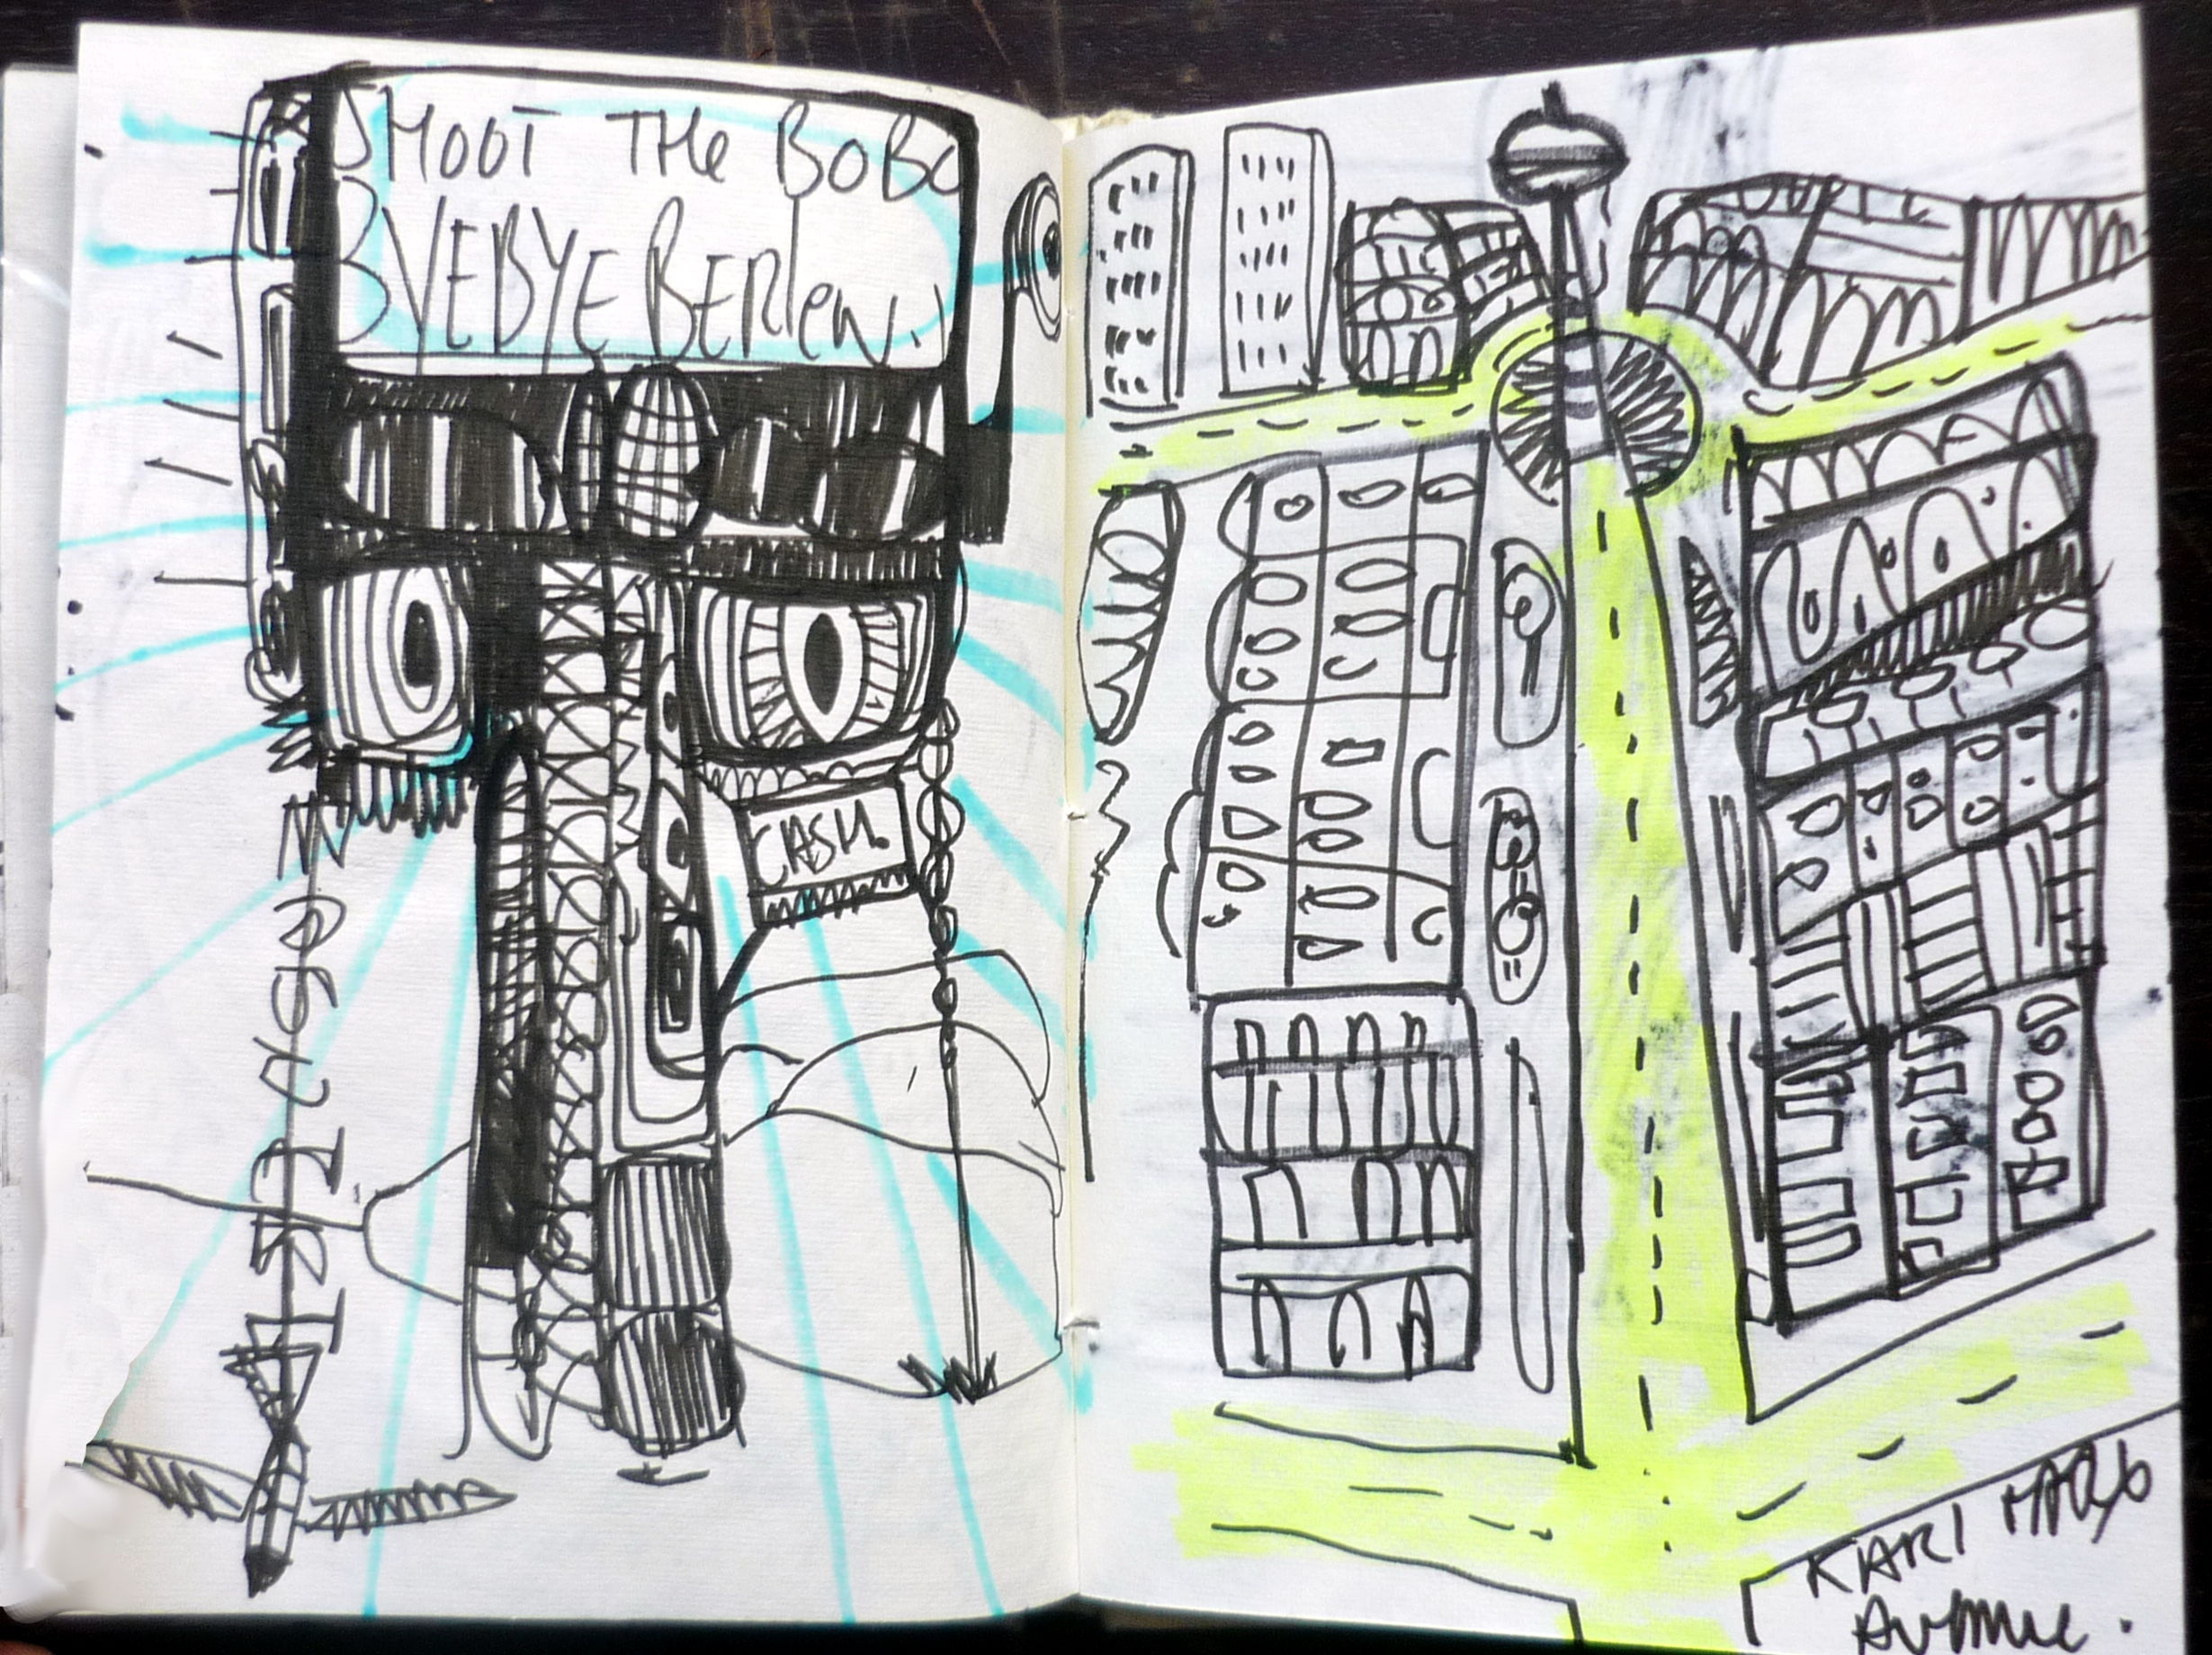 SHOOT THe BoBo
BYEBYE BERlen.
CASH.
KARl MARX
Avenue.